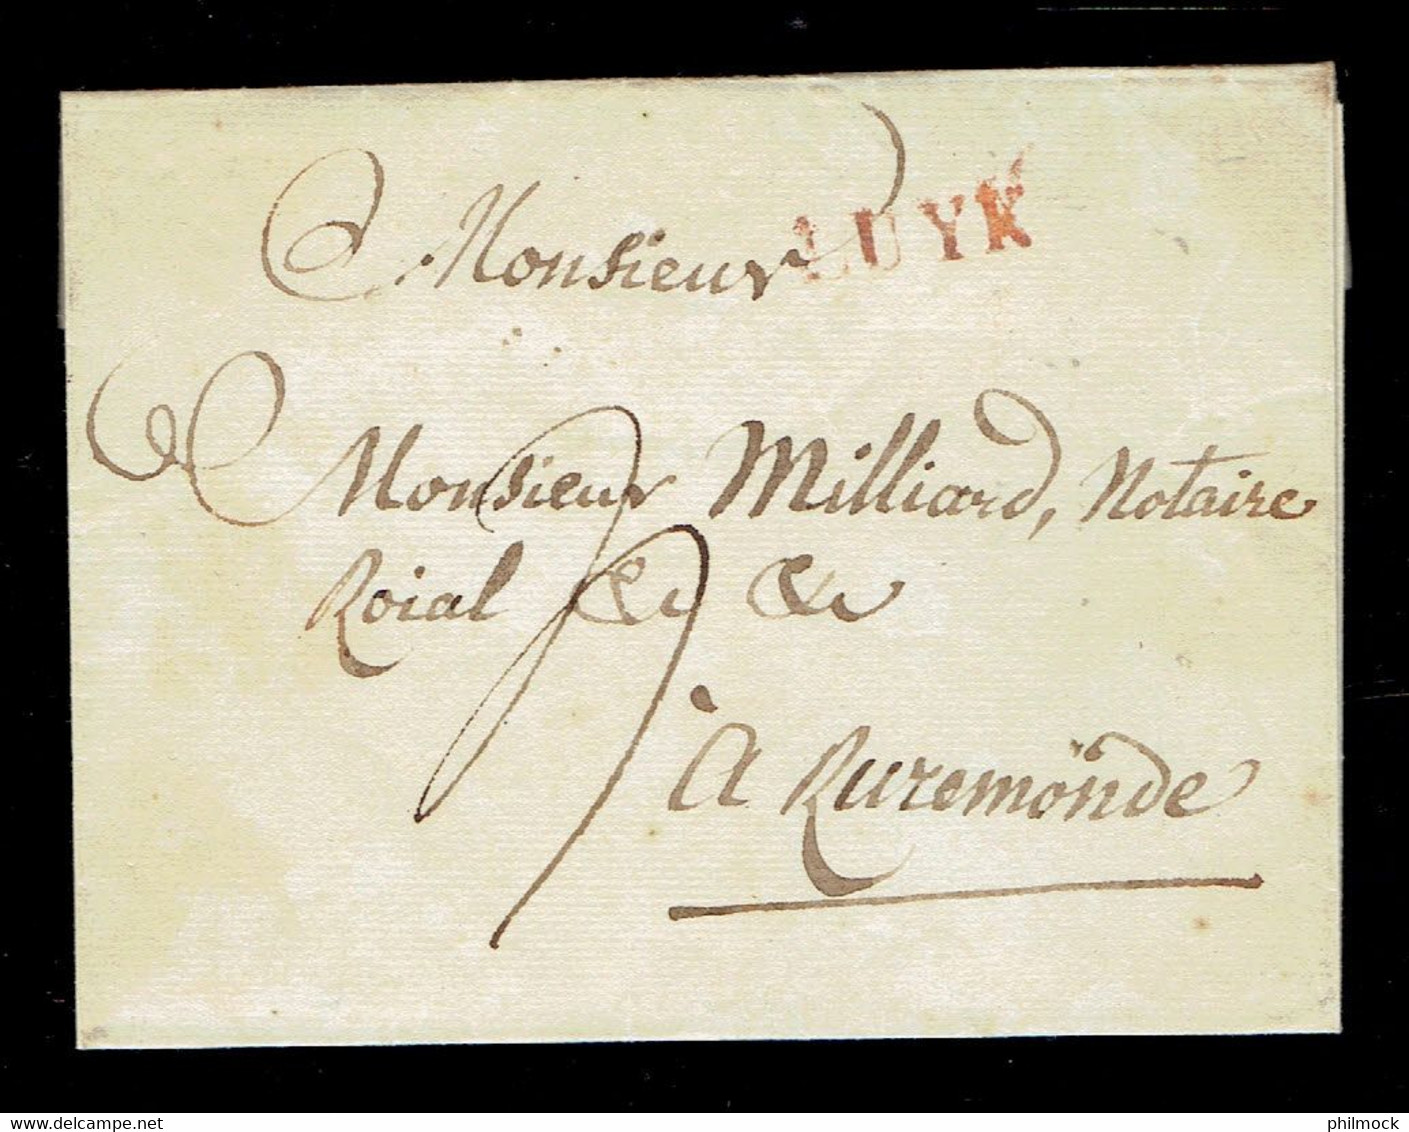 Monsieur LUYK
Monsieur Milliard, Notaire
Roial &c &c
à Ruremonde
philmock
delcampe.net